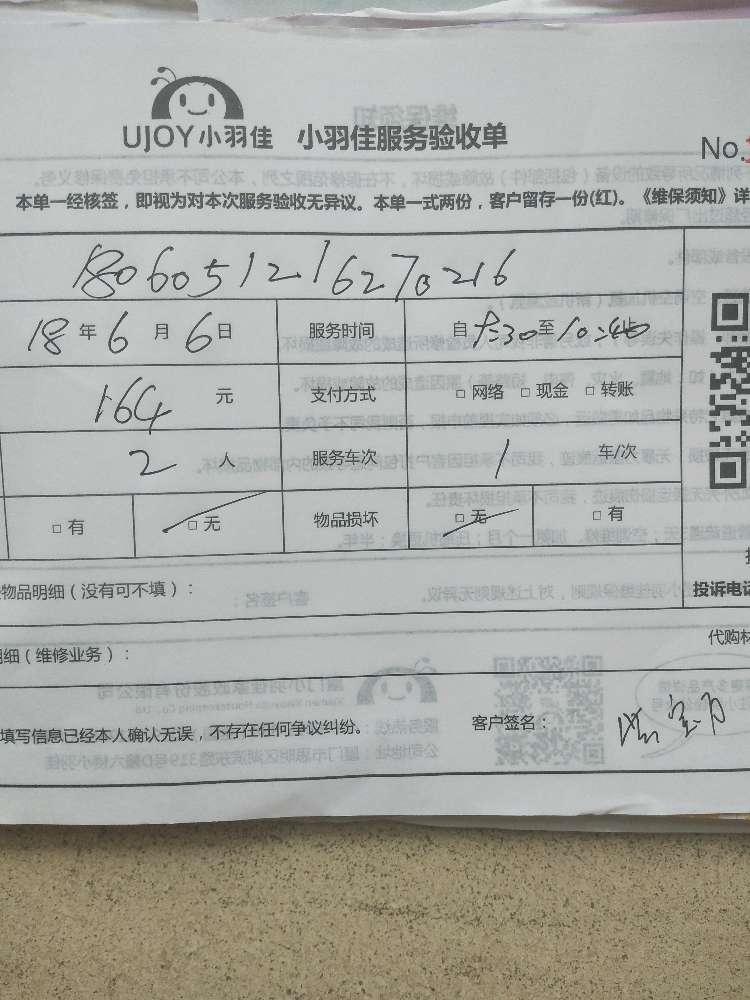 UJOY小羽佳 小羽佳服务验收单
No.
本单一经核签，即视为对本次服务验收无异议。本单一式两份，客户留存一份(红)。《维保须知》详
1806051216270216
18年6月6日 服务时间 自 :30至10:
164元 支付方式 □网络 □现金 □转账
2人 服务车次 1车/次
□有 □无 物品损坏 □无 □有
物品明细（没有可不填）：
投诉电话
细（维修业务）： 代购材
填写信息已经本人确认无误，不存在任何争议纠纷。 客户签名：